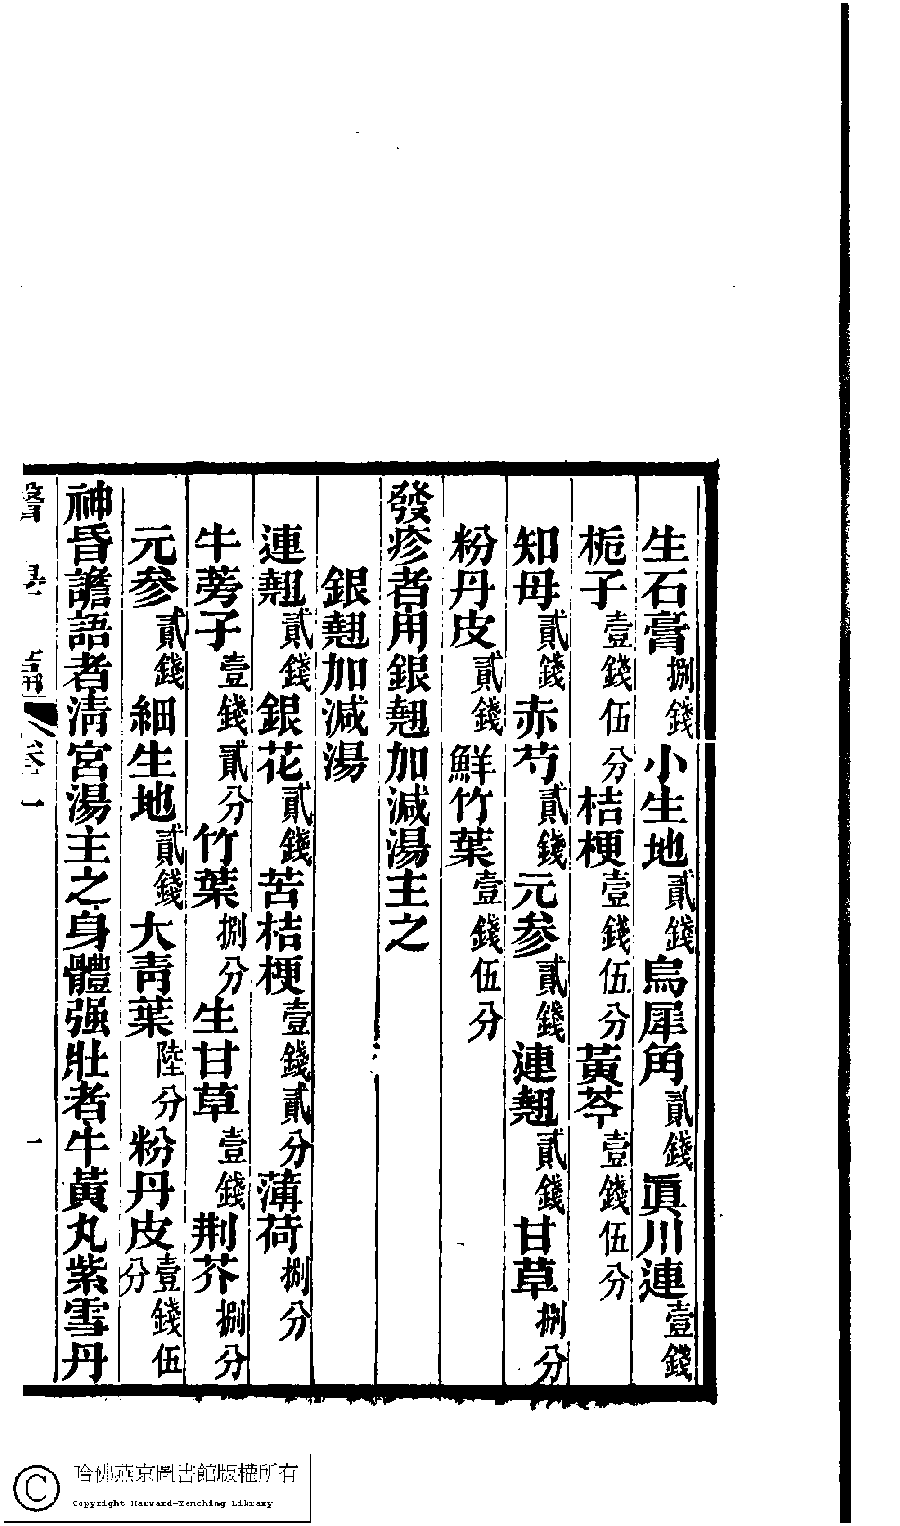 生石膏捌錢小生地貳錢烏犀角貳錢眞川連壹錢
梔子壹錢伍分桔梗壹錢伍分黃芩壹錢伍分
知母貳錢赤芍貳錢元參貳錢連翹貳錢甘草捌分
粉丹皮貳錢鮮竹葉壹錢伍分
發疹者用銀翹加減湯主之
銀翹加減湯
連翹貳錢銀花貳錢苦桔梗壹錢貳分薄荷捌分
牛蒡子壹錢貳分竹葉捌分生甘草壹錢荆芥捌分
元參貳錢細生地貳錢大靑葉陸分粉丹皮壹錢伍分
神昏譫語者淸宮湯主之身體强壯者牛黃丸紫雪丹
卷一
一
哈佛燕京圖書館版權所有
Copyright Harvard-Yenching Library